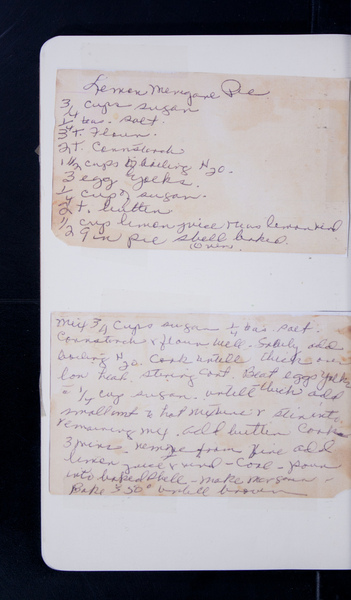 Lemon Merigane Pie
3/4 cups sugar
1/4 teas. salt.
3 T. Flour.
2 T. Cornstarch
1 1/2 cups boiling H2O.
3 egg yolks.
1/4 cup sugar.
2 T. butter
1/2 cup lemon juice & teas lemon rind
9 in pie shell baked.
Mix 3/4 cups sugar 1/4 teas. salt.
Cornstarch & flour well. Slowly add
boiling H2O. Cook untill thick over
low heat. string Const. Beat eggs yolks
1/4 cup sugar. untill thick add
small amt to hot mixture & stir into
remaining mix add butter Cook
3 mins. remove from fire add
lemon juice & rind - Cool - pour
into baked shell - make
Bake 350° untill brown